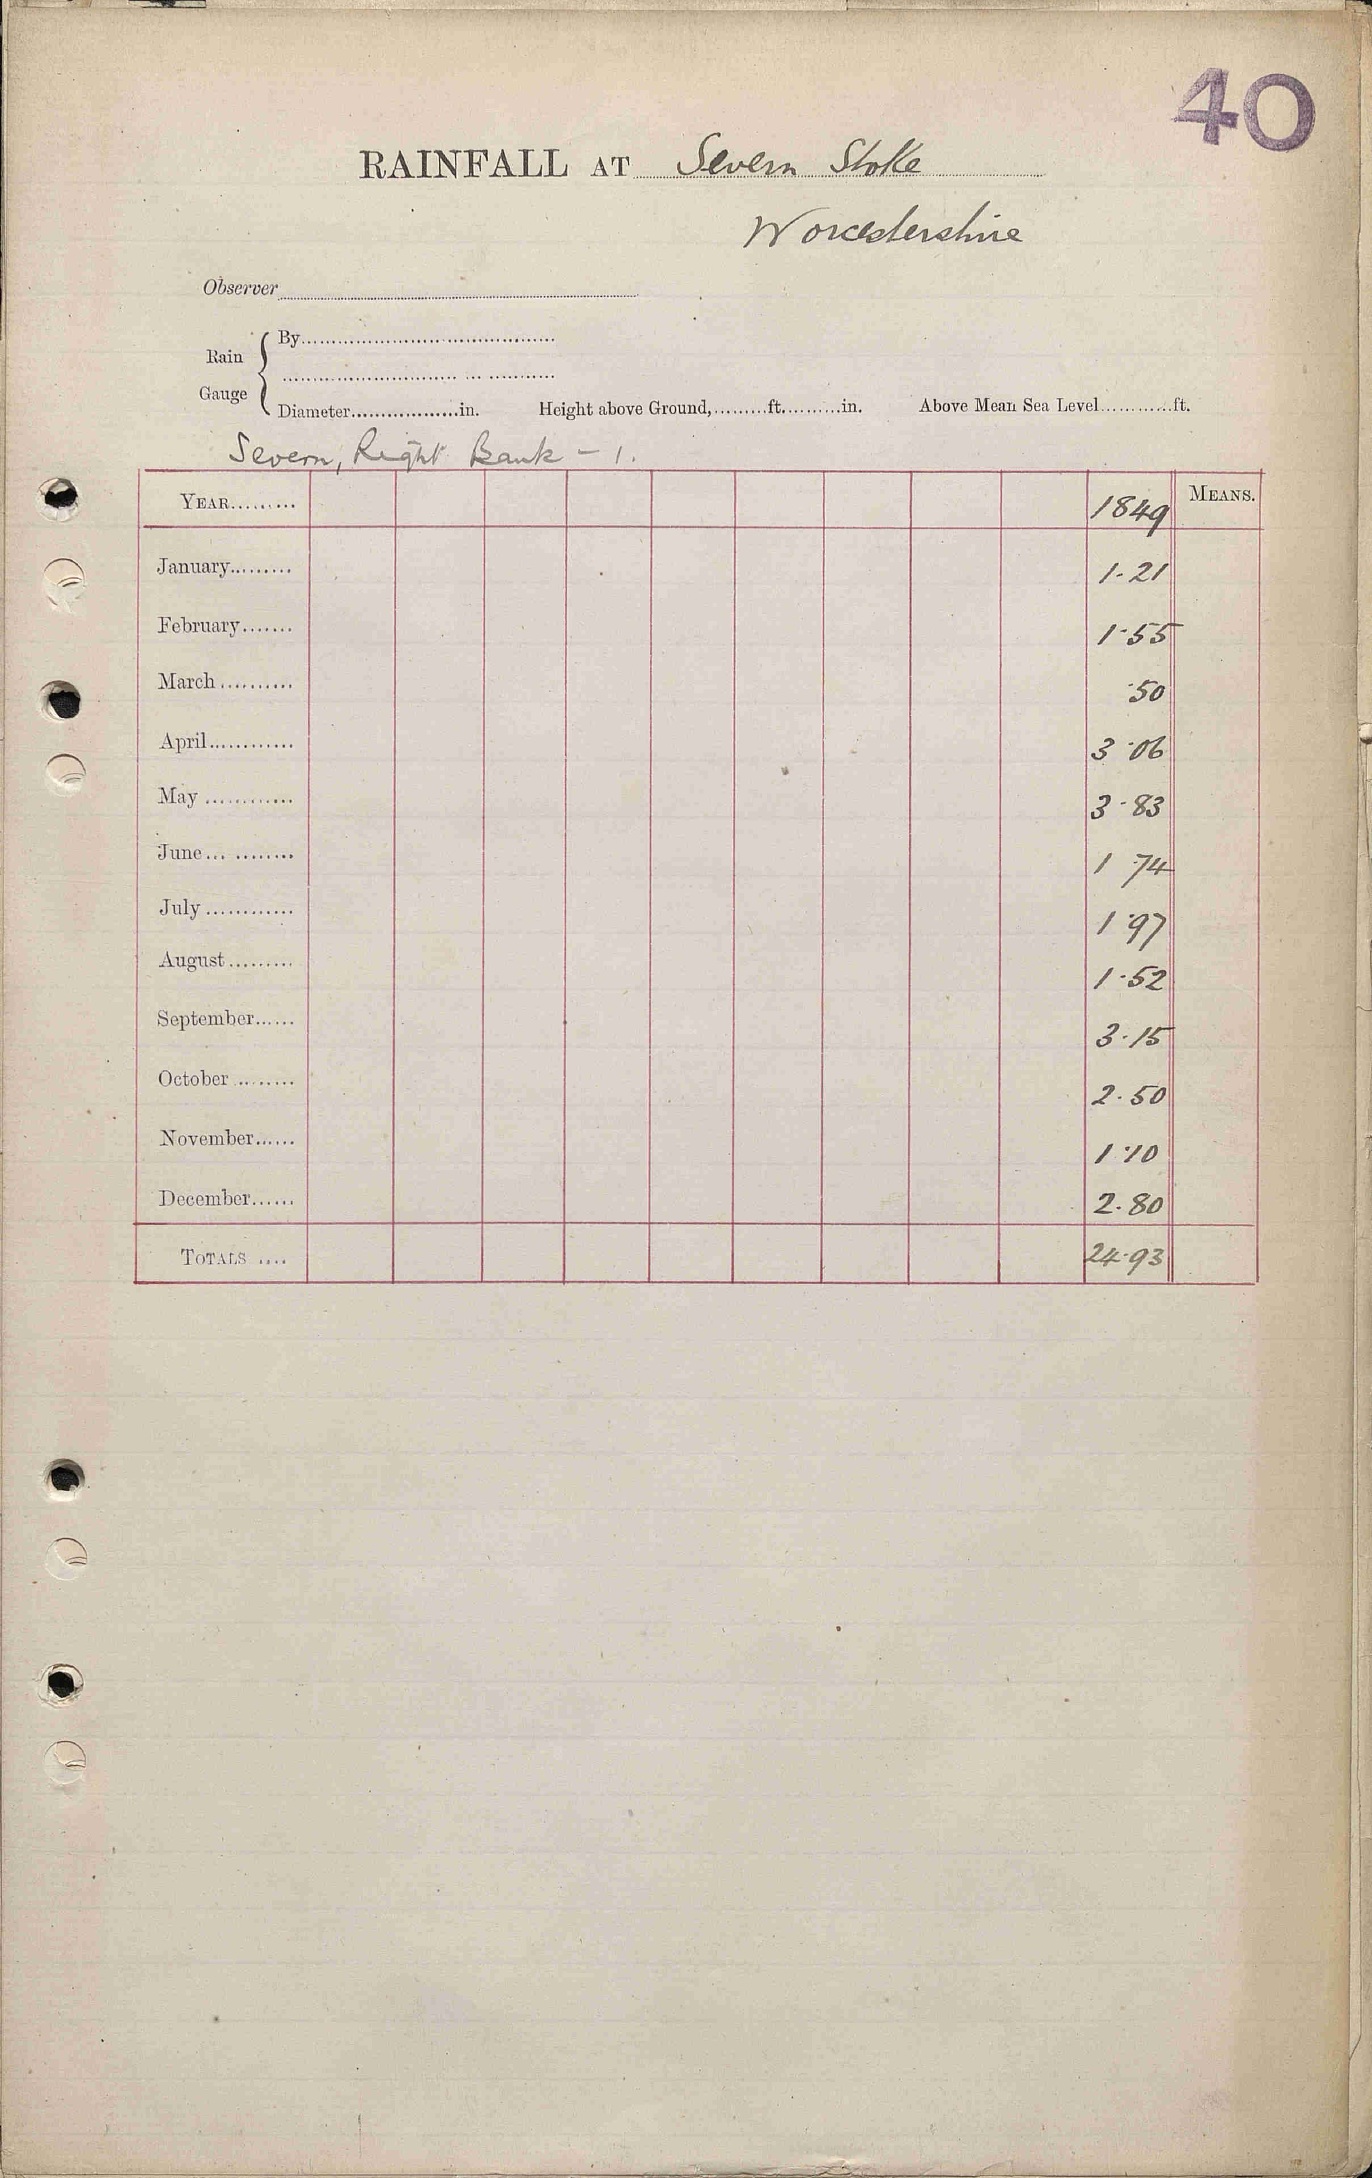 40
RAINFALL AT Severn Stoke
Worcestershire
Observer
Rain Gauge
By
Diameter..................in. Height above Ground,.........ft..........in. Above Mean Sea Level............ft.
Severn, Right Bank - 1.
YEAR......... 1849 MEANS.
January......... 1.21
February....... 1.55
March.......... .50
April............ 3.06
May ............ 3.83
June... ........ 1 .74
July ............ 1.97
August......... 1.52
September...... 3.15
October ......... 2.50
November...... 1.10
December...... 2.80
TOTALS .... 24.93